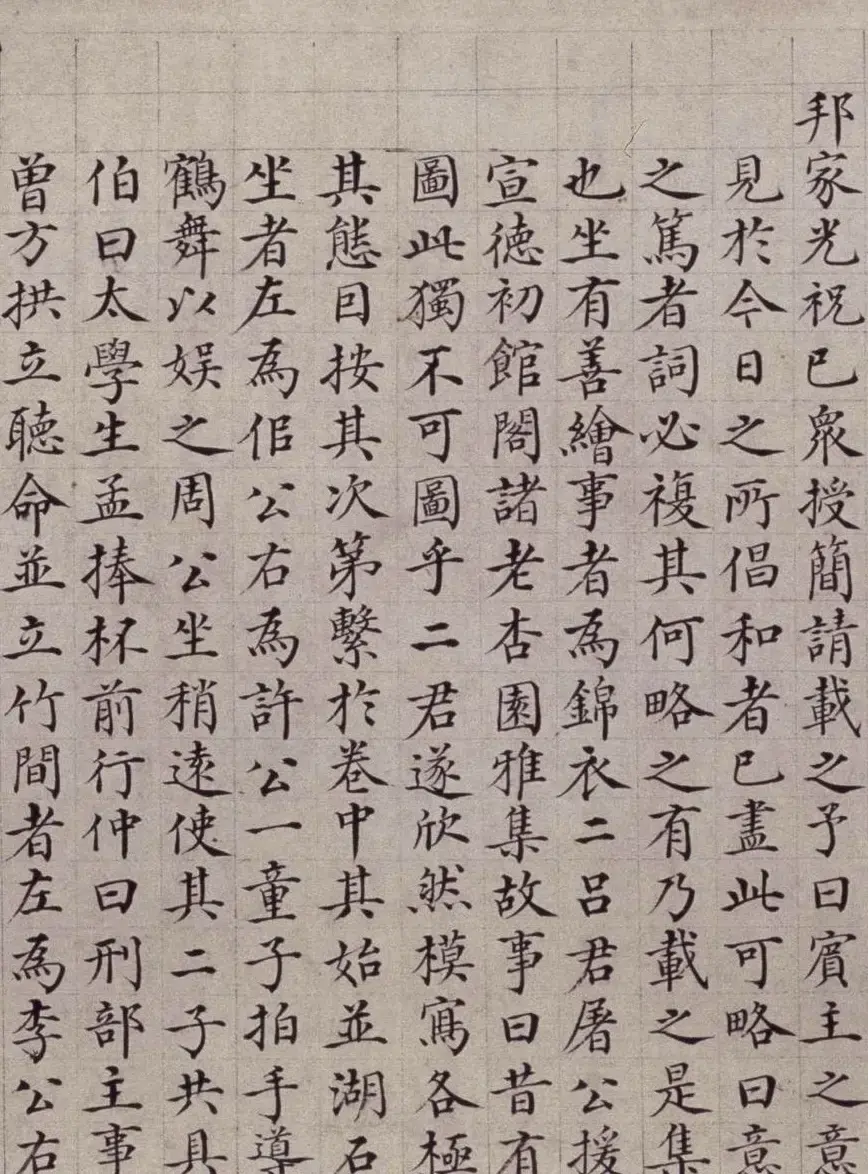 邦家光祝已衆授簡請載之予曰賓主之意
見於今日之所倡和者已盡此可略曰意
之篤者詞必複其何略之有乃載之是集
也坐有善繪事者為錦衣二呂君屠公援
宣德初館閣諸老杏園雅集故事曰昔有
圖此獨不可圖乎二君遂欣然模寫各極
其態目按其次第繫於卷中其始並湖石
坐者左為佀公右為許公一童子拍手導
鶴舞以娛之周公坐稍遠使其二子共具
伯曰太學生孟捧杯前行仲曰刑部主事
曽方拱立聽命並立竹間者左為李公右